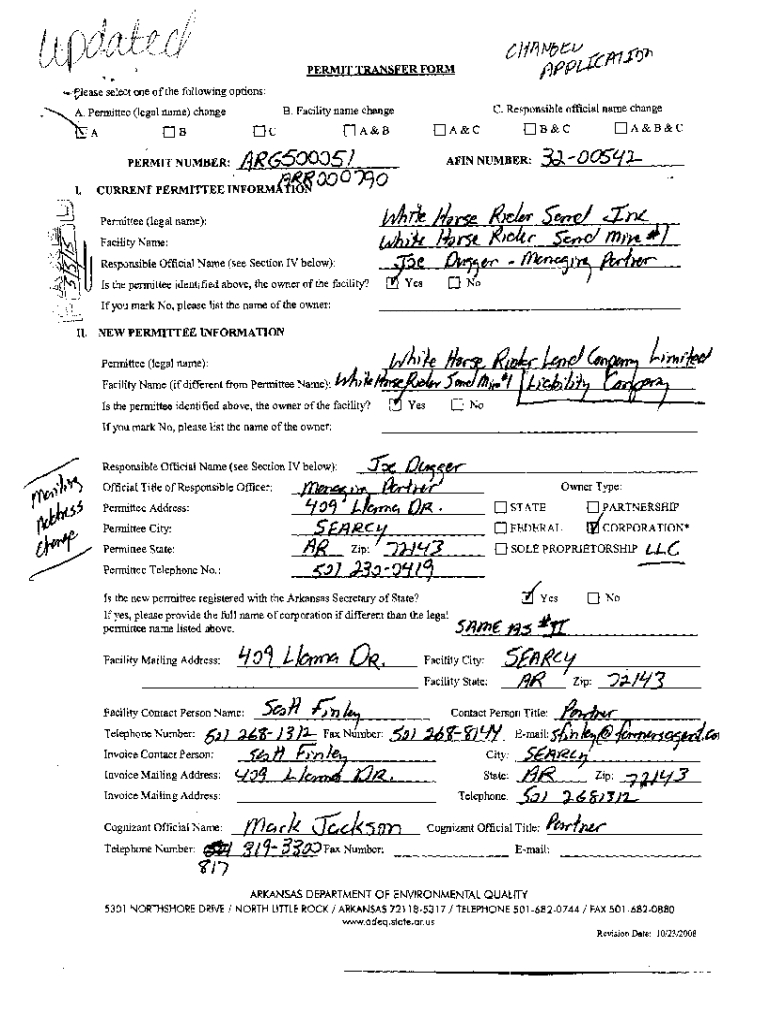 updated
CHANGED
APPLICATION
PERMIT TRANSFER FORM
Please select one of the following options:
A. Permittee (legal name) change B. Facility name change C. Responsible official name change
☑ A ☐ B ☐ C ☐ A & B ☐ A & C ☐ B & C ☐ A & B & C
PERMIT NUMBER: ARG500051 AFIN NUMBER: 32-00542
ARR000790
I. CURRENT PERMITTEE INFORMATION
Permittee (legal name): White Horse Rider Sand Inc
Facility Name: White Horse Rider Sand Mine #1
Responsible Official Name (see Section IV below): Joe Dugger - Managing Partner
Is the permittee identified above, the owner of the facility? ☑ Yes ☐ No
If you mark No, please list the name of the owner:
3/5/15
II. NEW PERMITTEE INFORMATION
Permittee (legal name): White Horse Rider Land Company Limited
Facility Name (if different from Permittee Name): White Horse Rider Sand Mine #1 Liability Company
Is the permittee identified above, the owner of the facility? ☑ Yes ☐ No
If you mark No, please list the name of the owner:
Responsible Official Name (see Section IV below): Joe Dugger
Mailing Address Change
Official Title of Responsible Officer: Managing Partner Owner Type:
Permittee Address: 409 Llama DR. ☐ STATE ☐ PARTNERSHIP
Permittee City: SEARCY ☐ FEDERAL ☑ CORPORATION*
Permittee State: AR Zip: 72143 ☐ SOLE PROPRIETORSHIP LLC
Permittee Telephone No.: 501 230-0419
Is the new permittee registered with the Arkansas Secretary of State? ☑ Yes ☐ No
If yes, please provide the full name of corporation if different than the legal
permittee name listed above. SAME AS #II
Facility Mailing Address: 409 Llama DR. Facility City: SEARCY
Facility State: AR Zip: 72143
Facility Contact Person Name: Scott Finley Contact Person Title: Partner
Telephone Number: 501 268-1312 Fax Number: 501 268-8144 E-mail: sfinley@farmersagent.co
Invoice Contact Person: Scott Finley City: SEARCY
Invoice Mailing Address: 409 Llama DR. State: AR Zip: 72143
Invoice Mailing Address: Telephone: 501 2681312
Cognizant Official Name: Mark Jackson Cognizant Official Title: Partner
Telephone Number: 319-3300 Fax Number: E-mail:
817
ARKANSAS DEPARTMENT OF ENVIRONMENTAL QUALITY
5301 NORTHSHORE DRIVE / NORTH LITTLE ROCK / ARKANSAS 72118-5317 / TELEPHONE 501-682-0744 / FAX 501-682-0880
www.adeq.state.ar.us
Revision Date: 10/23/2008